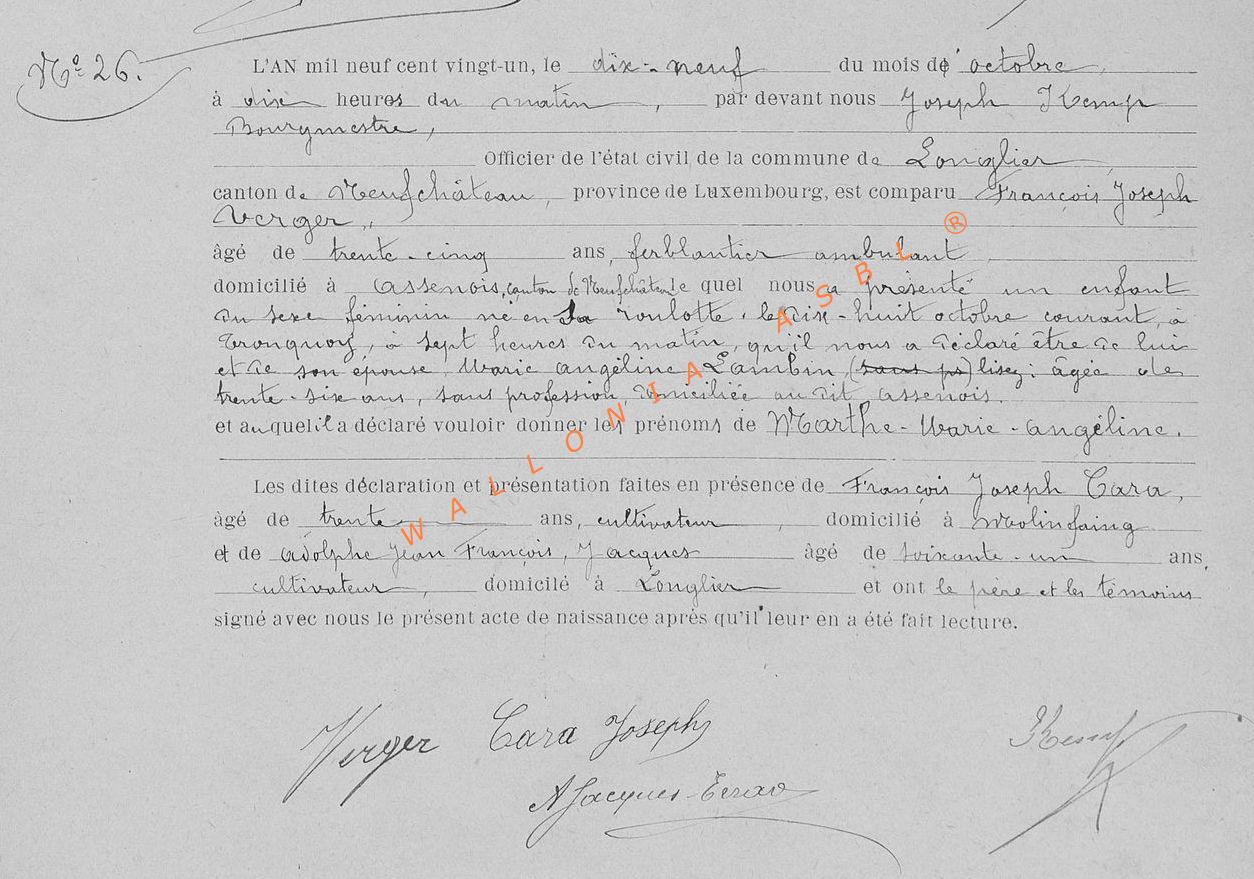 Nº 26.
L'AN mil neuf cent vingt-un, le dix-neuf du mois de octobre,
à dix heures du matin, par devant nous Joseph Kemp
Bourgmestre,
Officier de l'état civil de la commune de Longlier,
canton de Neufchâteau, province de Luxembourg, est comparu François Joseph
Verger,
âgé de trente-cinq ans, ferblantier ambulant
domicilié à Assenois, canton de Neufchâteau le quel nous a présenté un enfant
du sexe féminin né en sa roulotte, le dix-huit octobre courant, à
Tronquoy, à sept heures du matin, qu'il nous a déclaré être de lui
et de son épouse Marie Angéline Lambin, (sans pr) lisez: âgée de
trente-six ans, sans profession, domiciliée au dit Assenois.
et auquel il a déclaré vouloir donner les prénoms de Marthe-Marie-Angéline.
Les dites déclaration et présentation faites en présence de François Joseph Cara,
âgé de trente ans, cultivateur, domicilié à Molinfaing
et de Adolphe Jean François, Jacques âgé de soixante-un ans,
cultivateur, domicilé à Longlier et ont le père et les témoins
signé avec nous le présent acte de naissance après qu'il leur en a été fait lecture.
Verger Cara Joseph Kemp
A Jacques
WALLONIA ASBL ®